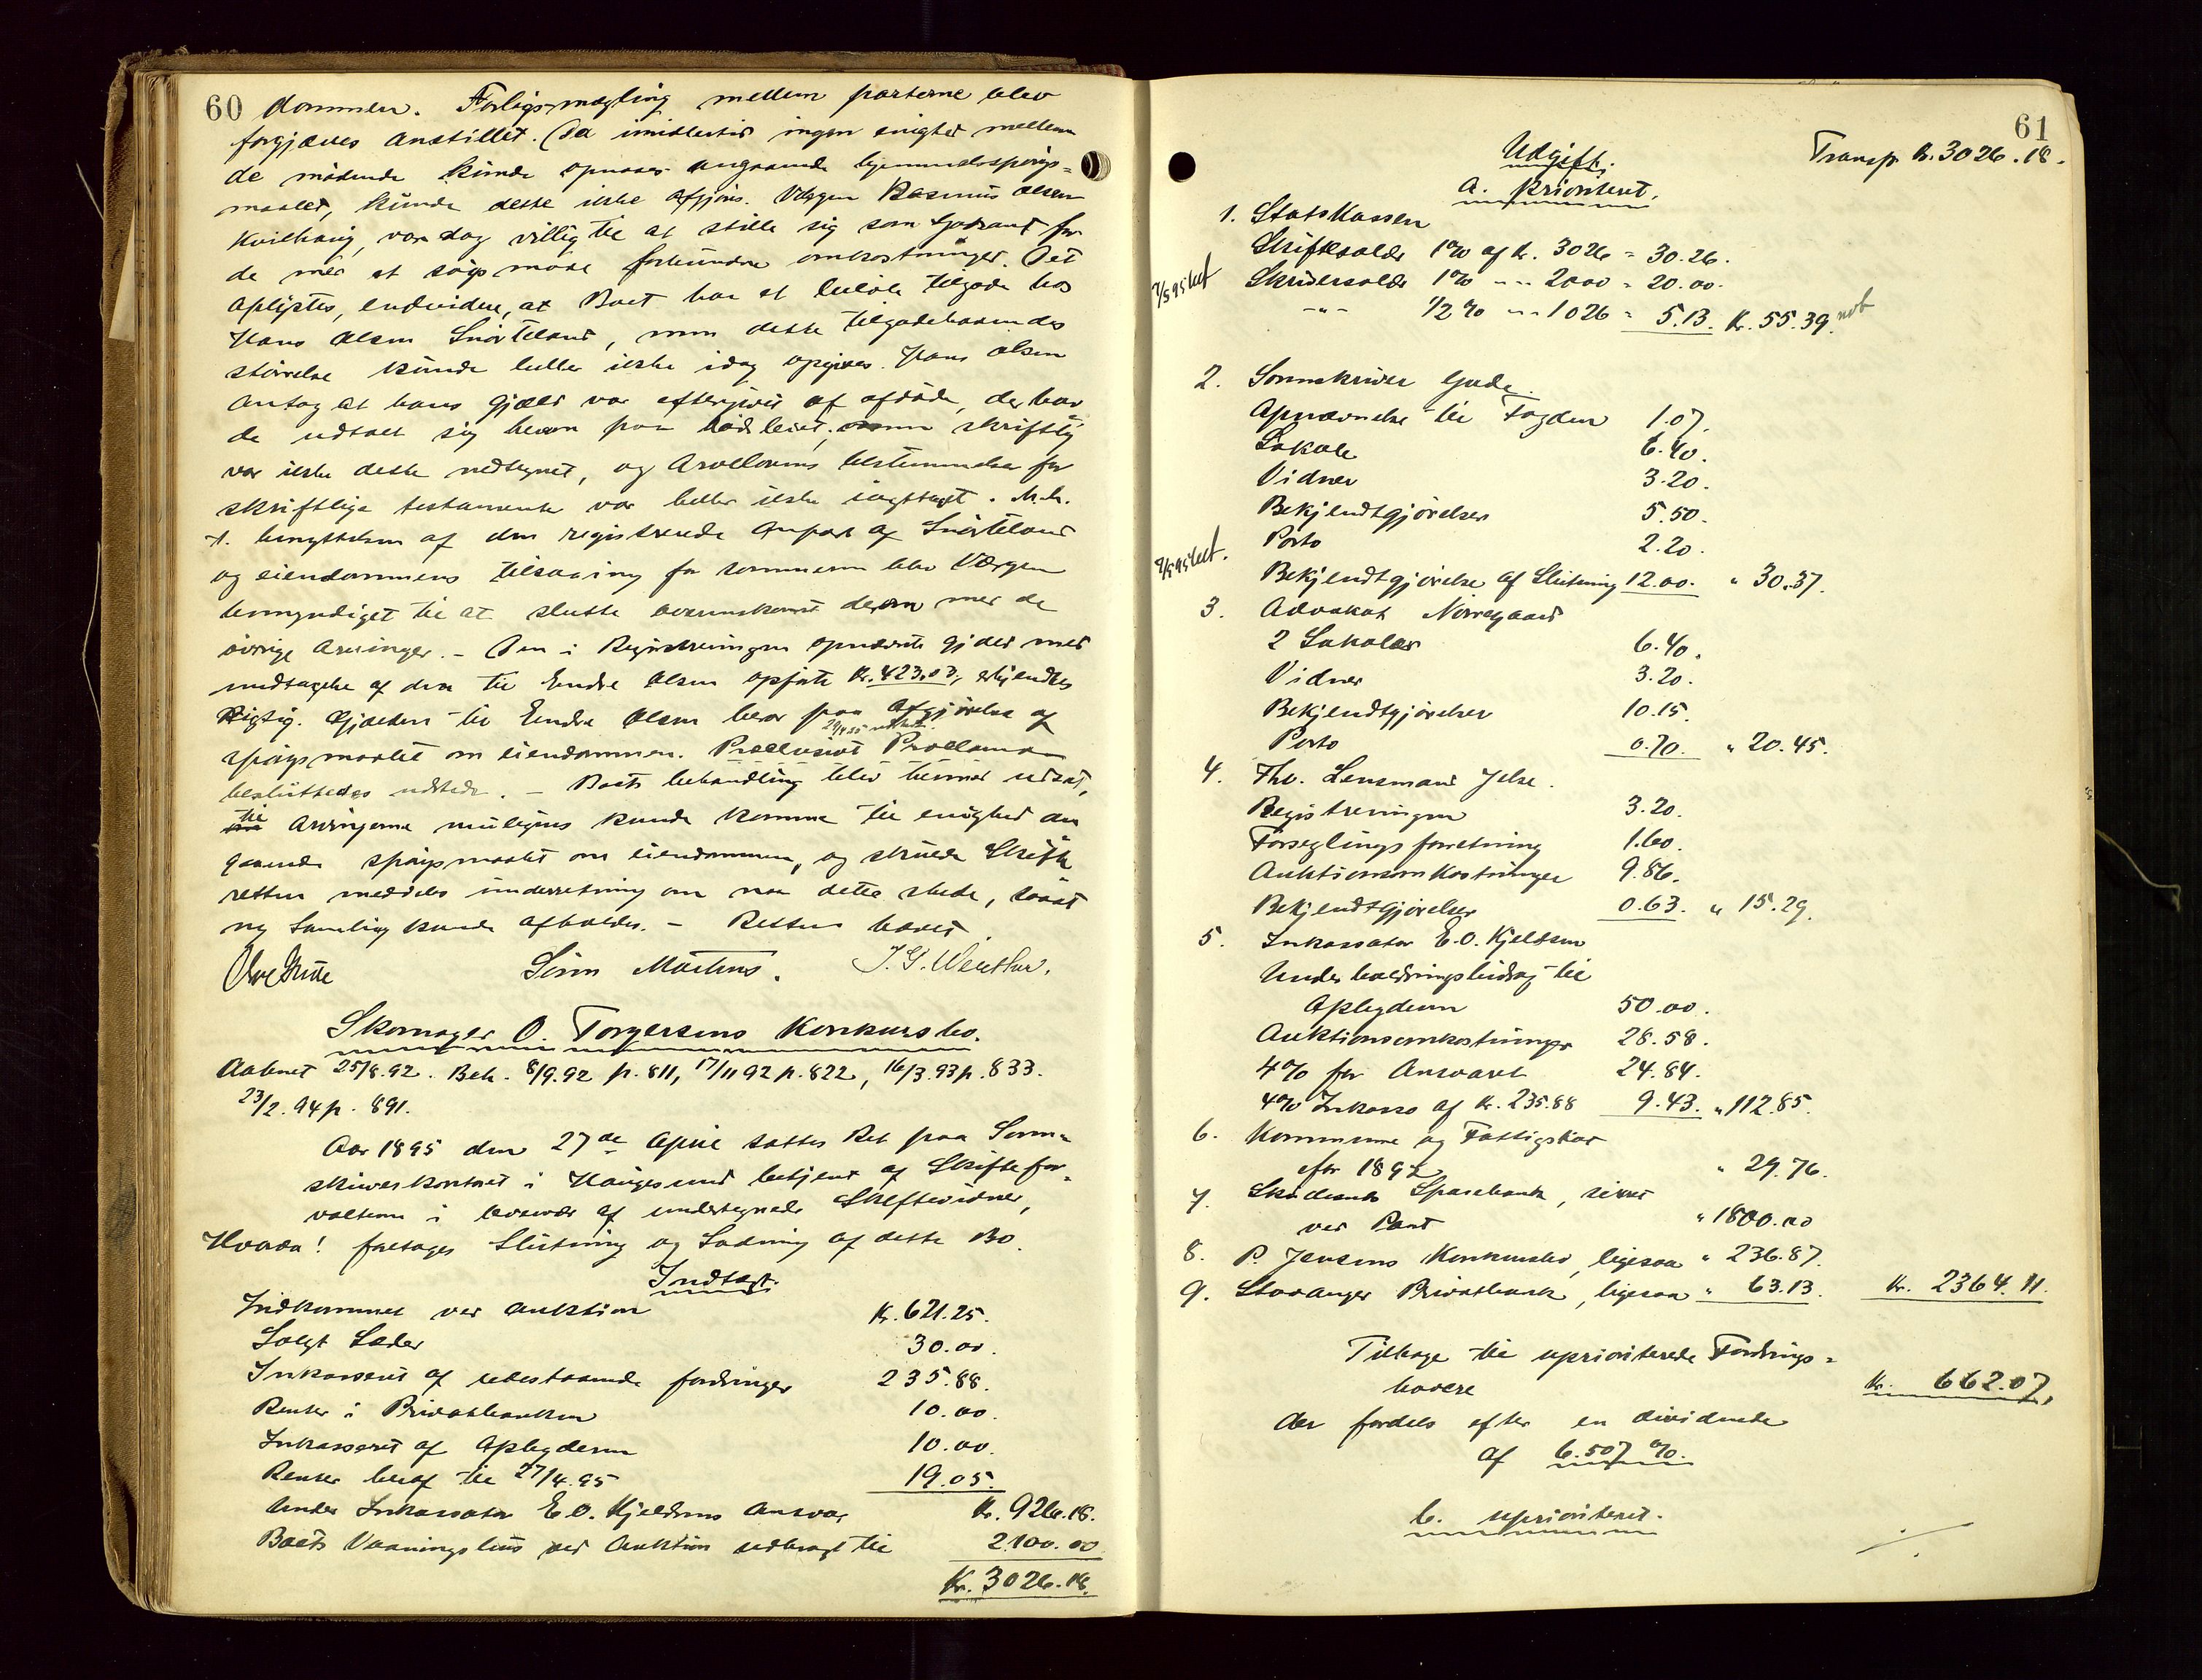 60 dommen. Forligsmægling mellem parterne blev
forgjæves anstillet. Da imidlertid ingen enighed mellem
de mødende kunde opnaaes angaaende hjemmelsspørgs=
maalet, kunde dette ikke afgjøres. Værgen Rasmus Olsen
Kvilhaug, var dog villig til at stille sig som Garant for
de med et søgsmaal forbundne omkostninger. Det
oplystes, endvidere, at Boet har et lidet tilgode hos
Hans Olsen Snørteland, men dette tilgodehavendes
størrelse kunde heller ikke idag opgives. Hans Olsen
antog at hans Gjæld var eftergivet af afdøde, der havde
udtalt sig herom paa dødsleiet; men skriftlig
var ikke dette nedtegnet, og Arvelovens bestemmelse for
skriftlige testamente var heller ikke iagttaget. M.h.
t. benyttelsen af den registrerede Anpart af Snørteland
og eiendommens tilsaaing for sommeren blev Værgen
bemyndiget til at slutte overenskomst derom med de
øvrige Arvinger. – Den i Registreringen opnævnte gjæld med
undtagelse af den til Endre Olsen opførte Kr. 423.03, erkjendtes
Rigtig. Gjælden til Endre Olsen beror paa Afgjørelse af
spørgsmaalet om eiendommen. Præclusivt Proclama
besluttedes udstedt. – Boets behandling blev herved udsat,
til Arvingerne muligens kunde komme til enighed an
gaaende spørgsmaalet om eiendommen, og skulde Skifte
retten meddeles underretning om naar dette skede, saa at
ny Samling kunde afholdes. – Retten hævet.
Sørn Martens. J. G. Wenther.
Skomager O. Torgersens Konkursbo.
Aabnet 25/8.92. Beh. 8/9.92 p. 811, 17/11 92 p. 822, 16/3.93 p. 833.
23/2.94 p. 891.
Aar 1895 den 27de April sattes Ret paa Soren=
skriverkontoret i Haugesund betjent af Skiftefor=
valteren i overvær af undertegnede Skiftevidner,
Hvorda! foretoges Slutning og Lodning af dette Bo.
Indtægt.
Indkommet ved Auktion Kr. 621.25.
Solgt Læder 30.00.
Inkasseret af udestaaende fordringer 235.88.
Renter i Privatbanken 10.00.
Inkasseret af Aplegderen 10.00.
Renter heraf til 27/4.95 19.05.
Under Inkassator E. O. Kjeldsens Ansvar Kr. 926.18.
Boets Vaaningshus ved Auktion udbragt til 2100.00
Kr. 3026.18.
61
Transp. Kr. 3026.18.
Udgift.
a. Prioriteret.
1. Statskassen
Skiftesalær 1% af Kr. 3026 = 30.26.
Skriversalær 1% -"- 2000 = 20.00.
-"- 1/2% -"- 1026 = 5.13. Kr. 55.39.
2. Sorenskriver Gade.
Opnævnelse til Fogden 1.07.
Lokale 6.40.
Vidner 3.20.
Bekjendtgjørelser 5.50.
Porto 2.20.
Bekjendtgjørelse af Slutning 12.00. " 30.37.
3. Advokat Nørregaard
2 Lokaler 6.40.
Vidner 3.20.
Bekjendtgjørelser 10.15.
Porto 0.70. " 20.45.
4. Fhv. Lensmand Jelse.
Registreringen 3.20.
Forseglingsforretning 1.60.
Auktionsomkostninger 9.86.
Bekjendtgjørelser 0.63. " 15.29.
5. Inkassator E. O. Kjeldsen
Underholdningsbidrag til
Aplegderen 50.00.
Auktionsomkostninger 28.58.
4% for Ansvaret 24.84.
4% Inkasso af Kr. 235.88 9.43. " 112.85.
6. Kommune og Fattigskat
for 1892 " 29.76.
7. Skudesnes Sparebank, sikret
ved Pant " 1800.00
8. P. Jensens Konkursbo, ligesaa " 236.87.
9. Stavanger Privatbank, ligesaa " 63.13. Kr. 2364.11.
Tilbage til uprioriterede Fordrings=
havere Kr. 662.07.
der fordeles efter en dividende
af 6.507 %.
b. uprioriteret.